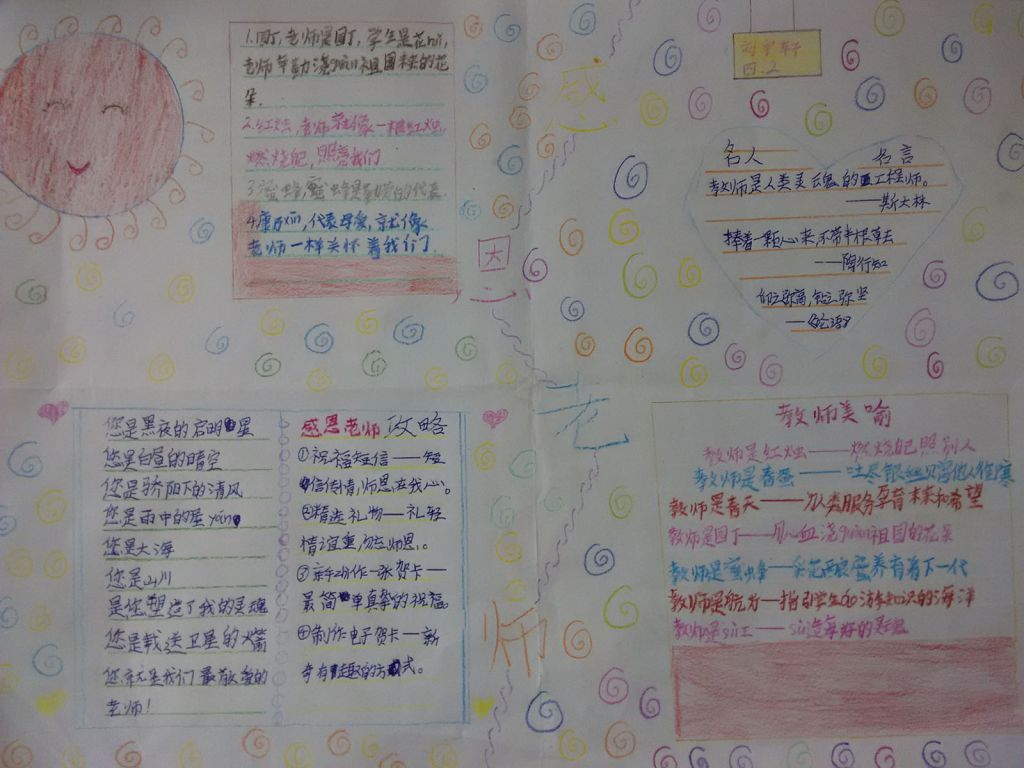 1.园丁,老师是园丁,学生是花朵,
老师辛勤浇guan祖国未来的花
朵.
2.红烛,老师就像一根红烛,
燃烧自己,照亮我们
3.蜜蜂,蜜蜂是勤劳的代表
4.康乃xin,代表母爱,就像
老师一样关怀着我们
感
恩
老
师
四.2
名人 名言
教师是人类灵魂的工程师。
——斯大林
捧着一颗心来,不带半根草去
---陶行知
仰之弥高,钻之弥坚
—论语
您是黑夜的启明星
您是白昼的晴空
您是骄阳下的清风
您是雨中的屋yan
您是大海
您是山川
是您塑造了我的灵魂
您是载送卫星的火箭
您就是我们最敬爱的
老师!
感恩老师攻略
①祝福短信——短
信传情,师恩在我心。
②精选礼物——礼轻
情谊重勿忘师恩.。
③亲动作一张贺卡—
最简单真挚的祝福
④制作电子贺卡——新
奇有趣的方式。
教师美喻
教师是红烛——燃烧自己照别人
教师是春蚕——吐尽银丝
教师是春天——为人类服务孕育未来和希望
教师是园丁——用心血浇guan祖国的花朵
教师是蜜蜂——养育着下一代
教师是航为—指引学生 知识的海洋